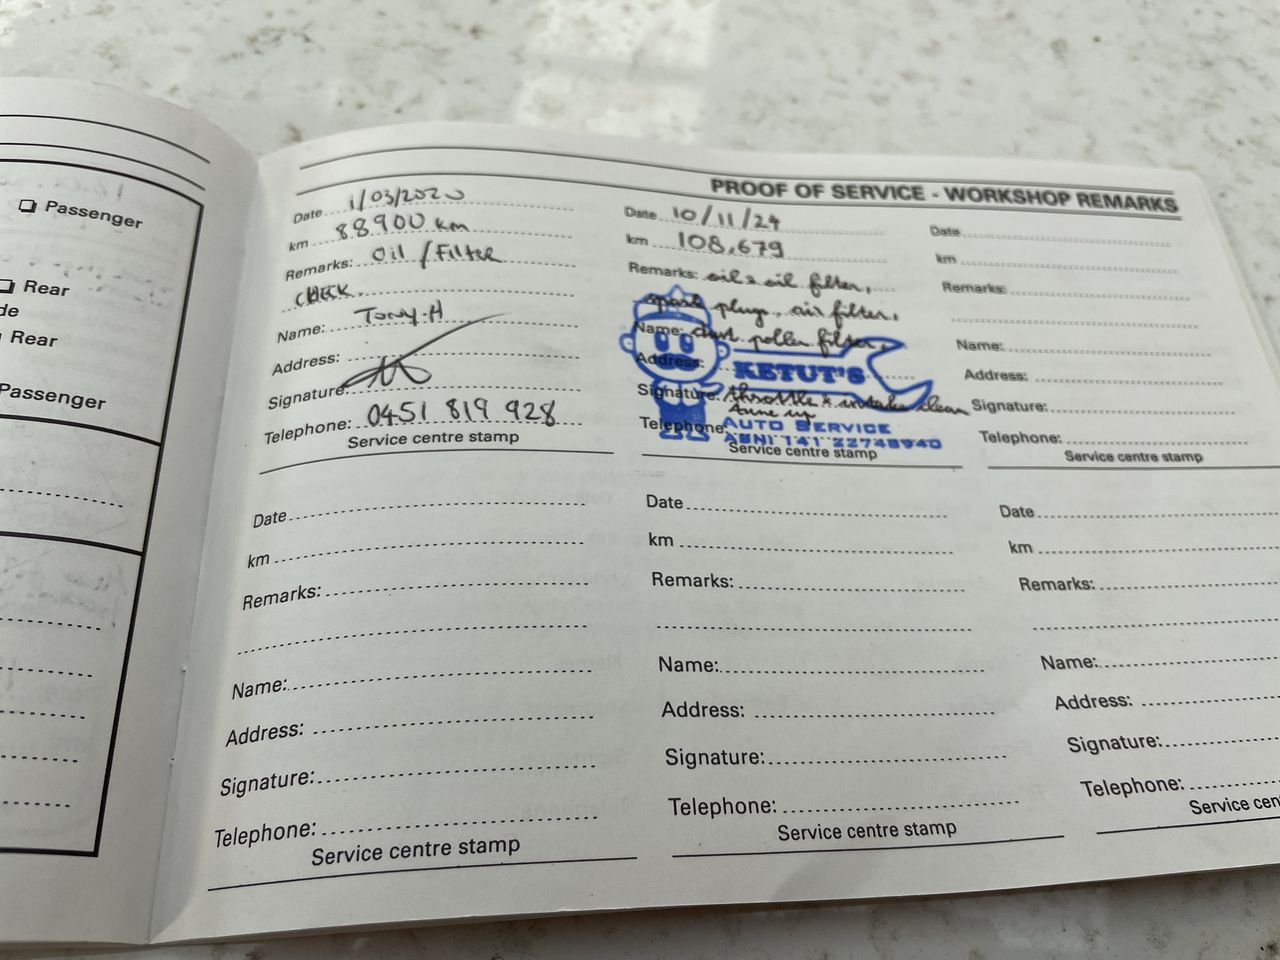 Passenger
Rear
de
Rear
Passenger
PROOF OF SERVICE - WORKSHOP REMARKS
Date 1/03/2020
km 88900 km
Remarks: Oil / Filter
CHECK
Name: Tony.H
Address:
Signature:
Telephone: 0451 819 928
Service centre stamp
Date 10/11/24
km 108,679
Remarks: oil & oil filter,
spark plugs, air filter,
Name: dust pollen filter,
Address: KETUT'S
Signature: throttle & intake clean
tune up
Telephone: AUTO SERVICE
22748940
Service centre stamp
Date
km
Remarks:
Name:
Address:
Signature:
Telephone:
Service centre stamp
Date
km
Remarks:
Name:
Address:
Signature:
Telephone:
Service centre stamp
Date
km
Remarks:
Name:
Address:
Signature:
Telephone:
Service centre stamp
Date
km
Remarks:
Name:
Address:
Signature:
Telephone:
Service cen